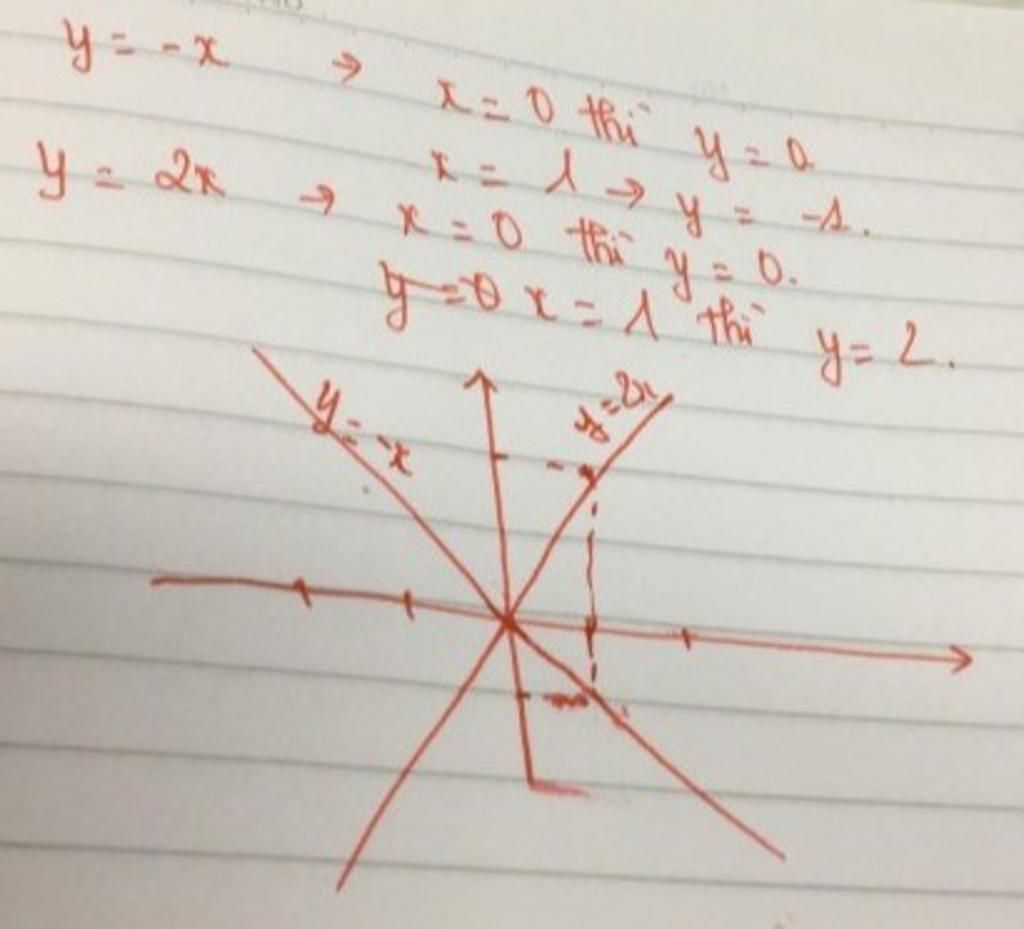 y = -x → x = 0 thì y = 0
x = 1 → y = -1.
y = 2x → x = 0 thì y = 0.
y = 0 x = 1 thì y = 2.
y = -x
y = 2x